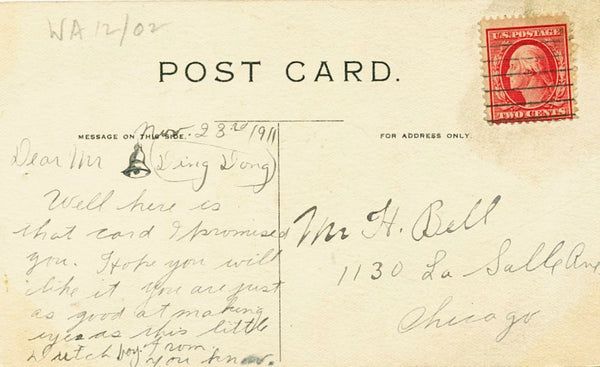 WA 12/02
U.S. POSTAGE
TWO CENTS
POST CARD.
Nov. 23rd 1911
MESSAGE ON THIS SIDE.
FOR ADDRESS ONLY.
Dear Mr (Ding Dong)
Well here is
that card I promised
you. Hope you will
like it you are just
as good at making
eyes as this little
Dutch boy from
you know.
Mr H. Bell
1130 La Salle Ave
Chicago